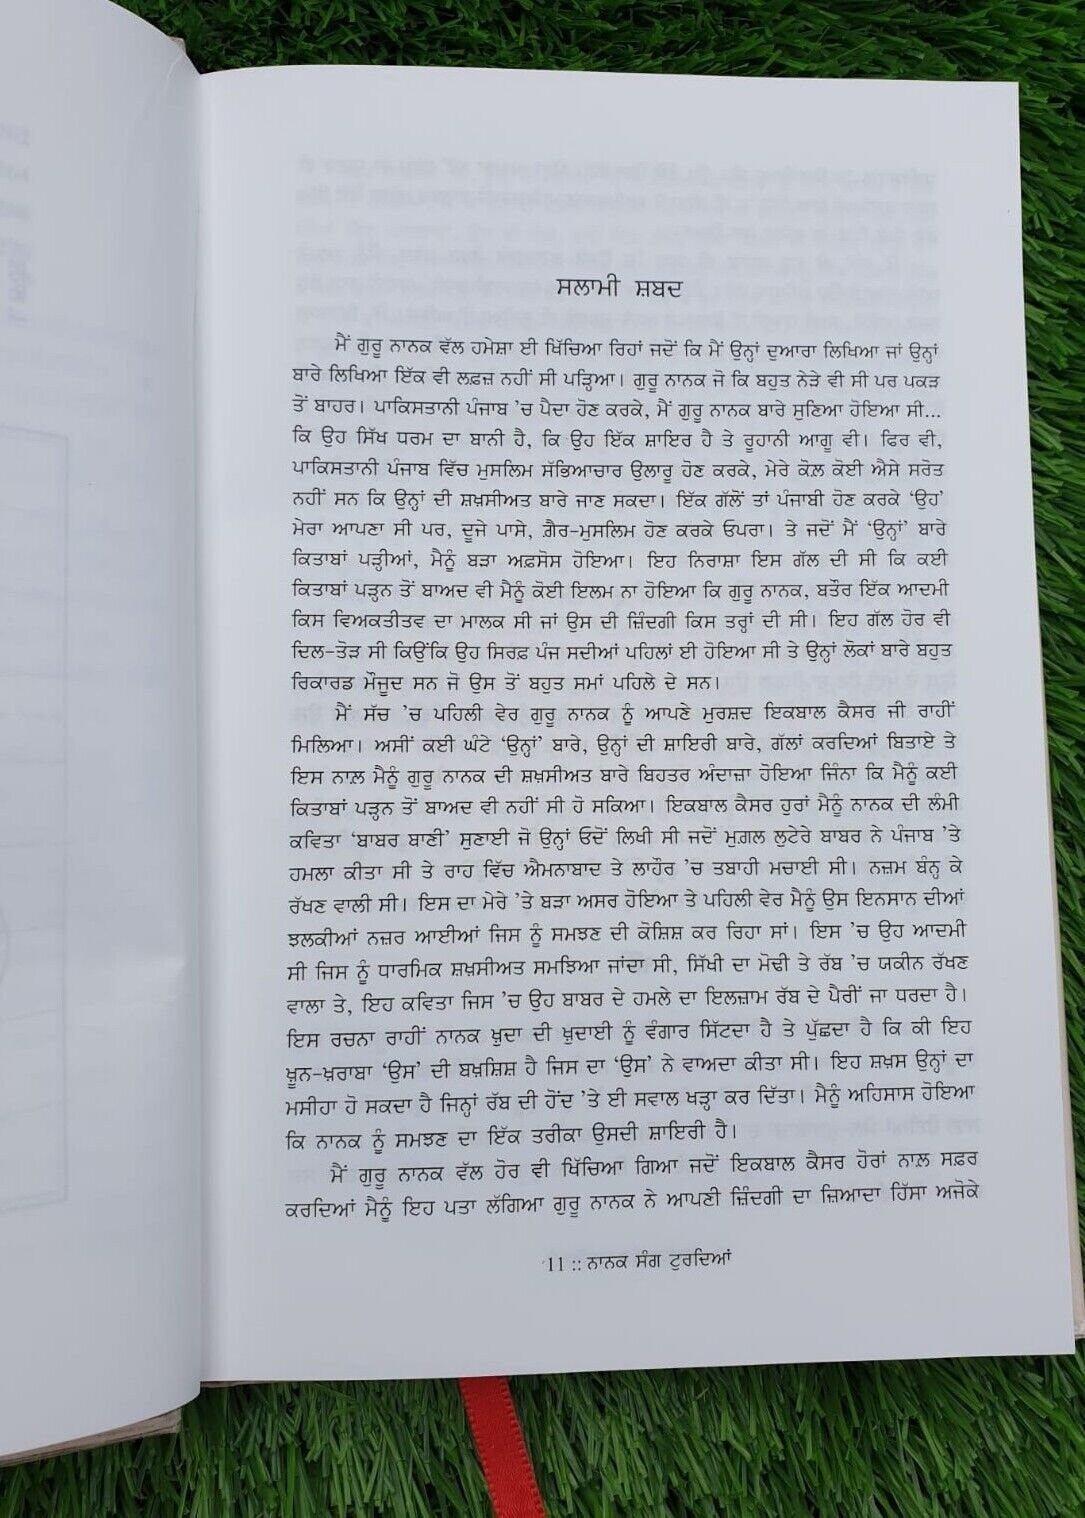 ਸਲਾਮੀ ਸ਼ਬਦ
ਮੈਂ ਗੁਰੂ ਨਾਨਕ ਵੱਲ ਹਮੇਸ਼ਾ ਈ ਖਿੱਚਿਆ ਰਿਹਾਂ ਜਦੋਂ ਕਿ ਮੈਂ ਉਨ੍ਹਾਂ ਦੁਆਰਾ ਲਿਖਿਆ ਜਾਂ ਉਨ੍ਹਾਂ
ਬਾਰੇ ਲਿਖਿਆ ਇੱਕ ਵੀ ਲਫ਼ਜ਼ ਨਹੀਂ ਸੀ ਪੜ੍ਹਿਆ। ਗੁਰੂ ਨਾਨਕ ਜੋ ਕਿ ਬਹੁਤ ਨੇੜੇ ਵੀ ਸੀ ਪਰ ਪਕੜ
ਤੋਂ ਬਾਹਰ। ਪਾਕਿਸਤਾਨੀ ਪੰਜਾਬ 'ਚ ਪੈਦਾ ਹੋਣ ਕਰਕੇ, ਮੈਂ ਗੁਰੂ ਨਾਨਕ ਬਾਰੇ ਸੁਣਿਆ ਹੋਇਆ ਸੀ...
ਕਿ ਉਹ ਸਿੱਖ ਧਰਮ ਦਾ ਬਾਨੀ ਹੈ, ਕਿ ਉਹ ਇੱਕ ਸ਼ਾਇਰ ਹੈ ਤੇ ਰੂਹਾਨੀ ਆਗੂ ਵੀ। ਫਿਰ ਵੀ,
ਪਾਕਿਸਤਾਨੀ ਪੰਜਾਬ ਵਿੱਚ ਮੁਸਲਿਮ ਸੱਭਿਆਚਾਰ ਉਲਾਰੂ ਹੋਣ ਕਰਕੇ, ਮੇਰੇ ਕੋਲ਼ ਕੋਈ ਐਸੇ ਸਰੋਤ
ਨਹੀਂ ਸਨ ਕਿ ਉਨ੍ਹਾਂ ਦੀ ਸ਼ਖ਼ਸੀਅਤ ਬਾਰੇ ਜਾਣ ਸਕਦਾ। ਇੱਕ ਗੱਲੋਂ ਤਾਂ ਪੰਜਾਬੀ ਹੋਣ ਕਰਕੇ 'ਉਹ'
ਮੇਰਾ ਆਪਣਾ ਸੀ ਪਰ, ਦੂਜੇ ਪਾਸੇ, ਗ਼ੈਰ-ਮੁਸਲਿਮ ਹੋਣ ਕਰਕੇ ਓਪਰਾ। ਤੇ ਜਦੋਂ ਮੈਂ 'ਉਨ੍ਹਾਂ' ਬਾਰੇ
ਕਿਤਾਬਾਂ ਪੜ੍ਹੀਆਂ, ਮੈਨੂੰ ਬੜਾ ਅਫ਼ਸੋਸ ਹੋਇਆ। ਇਹ ਨਿਰਾਸ਼ਾ ਇਸ ਗੱਲ ਦੀ ਸੀ ਕਿ ਕਈ
ਕਿਤਾਬਾਂ ਪੜ੍ਹਨ ਤੋਂ ਬਾਅਦ ਵੀ ਮੈਨੂੰ ਕੋਈ ਇਲਮ ਨਾ ਹੋਇਆ ਕਿ ਗੁਰੂ ਨਾਨਕ, ਬਤੌਰ ਇੱਕ ਆਦਮੀ
ਕਿਸ ਵਿਅਕਤੀਤਵ ਦਾ ਮਾਲਕ ਸੀ ਜਾਂ ਉਸ ਦੀ ਜ਼ਿੰਦਗੀ ਕਿਸ ਤਰ੍ਹਾਂ ਦੀ ਸੀ। ਇਹ ਗੱਲ ਹੋਰ ਵੀ
ਦਿਲ-ਤੋੜ ਸੀ ਕਿਉਂਕਿ ਉਹ ਸਿਰਫ਼ ਪੰਜ ਸਦੀਆਂ ਪਹਿਲਾਂ ਈ ਹੋਇਆ ਸੀ ਤੇ ਉਨ੍ਹਾਂ ਲੋਕਾਂ ਬਾਰੇ ਬਹੁਤ
ਰਿਕਾਰਡ ਮੌਜੂਦ ਸਨ ਜੋ ਉਸ ਤੋਂ ਬਹੁਤ ਸਮਾਂ ਪਹਿਲੇ ਦੇ ਸਨ।
ਮੈਂ ਸੱਚ 'ਚ ਪਹਿਲੀ ਵੇਰ ਗੁਰੂ ਨਾਨਕ ਨੂੰ ਆਪਣੇ ਮੁਰਸ਼ਦ ਇਕਬਾਲ ਕੈਸਰ ਜੀ ਰਾਹੀਂ
ਮਿਲਿਆ। ਅਸੀਂ ਕਈ ਘੰਟੇ 'ਉਨ੍ਹਾਂ' ਬਾਰੇ, ਉਨ੍ਹਾਂ ਦੀ ਸ਼ਾਇਰੀ ਬਾਰੇ, ਗੱਲਾਂ ਕਰਦਿਆਂ ਬਿਤਾਏ ਤੇ
ਇਸ ਨਾਲ਼ ਮੈਨੂੰ ਗੁਰੂ ਨਾਨਕ ਦੀ ਸ਼ਖ਼ਸੀਅਤ ਬਾਰੇ ਬਿਹਤਰ ਅੰਦਾਜ਼ਾ ਹੋਇਆ ਜਿੰਨਾ ਕਿ ਮੈਨੂੰ ਕਈ
ਕਿਤਾਬਾਂ ਪੜ੍ਹਨ ਤੋਂ ਬਾਅਦ ਵੀ ਨਹੀਂ ਸੀ ਹੋ ਸਕਿਆ। ਇਕਬਾਲ ਕੈਸਰ ਹੁਰਾਂ ਮੈਨੂੰ ਨਾਨਕ ਦੀ ਲੰਮੀ
ਕਵਿਤਾ 'ਬਾਬਰ ਬਾਣੀ' ਸੁਣਾਈ ਜੋ ਉਨ੍ਹਾਂ ਓਦੋਂ ਲਿਖੀ ਸੀ ਜਦੋਂ ਮੁਗ਼ਲ ਲੁਟੇਰੇ ਬਾਬਰ ਨੇ ਪੰਜਾਬ 'ਤੇ
ਹਮਲਾ ਕੀਤਾ ਸੀ ਤੇ ਰਾਹ ਵਿੱਚ ਐਮਨਾਬਾਦ ਤੇ ਲਾਹੌਰ 'ਚ ਤਬਾਹੀ ਮਚਾਈ ਸੀ। ਨਜ਼ਮ ਬੰਨ੍ਹ ਕੇ
ਰੱਖਣ ਵਾਲੀ ਸੀ। ਇਸ ਦਾ ਮੇਰੇ 'ਤੇ ਬੜਾ ਅਸਰ ਹੋਇਆ ਤੇ ਪਹਿਲੀ ਵੇਰ ਮੈਨੂੰ ਉਸ ਇਨਸਾਨ ਦੀਆਂ
ਝਲਕੀਆਂ ਨਜ਼ਰ ਆਈਆਂ ਜਿਸ ਨੂੰ ਸਮਝਣ ਦੀ ਕੋਸ਼ਿਸ਼ ਕਰ ਰਿਹਾ ਸਾਂ। ਇਸ 'ਚ ਉਹ ਆਦਮੀ
ਸੀ ਜਿਸ ਨੂੰ ਧਾਰਮਿਕ ਸ਼ਖ਼ਸੀਅਤ ਸਮਝਿਆ ਜਾਂਦਾ ਸੀ, ਸਿੱਖੀ ਦਾ ਮੋਢੀ ਤੇ ਰੱਬ 'ਚ ਯਕੀਨ ਰੱਖਣ
ਵਾਲਾ ਤੇ, ਇਹ ਕਵਿਤਾ ਜਿਸ 'ਚ ਉਹ ਬਾਬਰ ਦੇ ਹਮਲੇ ਦਾ ਇਲਜ਼ਾਮ ਰੱਬ ਦੇ ਪੈਰੀਂ ਜਾ ਧਰਦਾ ਹੈ।
ਇਸ ਰਚਨਾ ਰਾਹੀਂ ਨਾਨਕ ਖ਼ੁਦਾ ਦੀ ਖ਼ੁਦਾਈ ਨੂੰ ਵੰਗਾਰ ਸਿੱਟਦਾ ਹੈ ਤੇ ਪੁੱਛਦਾ ਹੈ ਕਿ ਕੀ ਇਹ
ਖ਼ੂਨ-ਖ਼ਰਾਬਾ 'ਉਸ' ਦੀ ਬਖ਼ਸ਼ਿਸ਼ ਹੈ ਜਿਸ ਦਾ 'ਉਸ' ਨੇ ਵਾਅਦਾ ਕੀਤਾ ਸੀ। ਇਹ ਸ਼ਖ਼ਸ ਉਨ੍ਹਾਂ ਦਾ
ਮਸੀਹਾ ਹੋ ਸਕਦਾ ਹੈ ਜਿਨ੍ਹਾਂ ਰੱਬ ਦੀ ਹੋਂਦ 'ਤੇ ਈ ਸਵਾਲ ਖੜ੍ਹਾ ਕਰ ਦਿੱਤਾ। ਮੈਨੂੰ ਅਹਿਸਾਸ ਹੋਇਆ
ਕਿ ਨਾਨਕ ਨੂੰ ਸਮਝਣ ਦਾ ਇੱਕ ਤਰੀਕਾ ਉਸਦੀ ਸ਼ਾਇਰੀ ਹੈ।
ਮੈਂ ਗੁਰੂ ਨਾਨਕ ਵੱਲ ਹੋਰ ਵੀ ਖਿੱਚਿਆ ਗਿਆ ਜਦੋਂ ਇਕਬਾਲ ਕੈਸਰ ਹੋਰਾਂ ਨਾਲ਼ ਸਫ਼ਰ
ਕਰਦਿਆਂ ਮੈਨੂੰ ਇਹ ਪਤਾ ਲੱਗਿਆ ਗੁਰੂ ਨਾਨਕ ਨੇ ਆਪਣੀ ਜ਼ਿੰਦਗੀ ਦਾ ਜ਼ਿਆਦਾ ਹਿੱਸਾ ਅਜੋਕੇ
11 :: ਨਾਨਕ ਸੰਗ ਟੁਰਦਿਆਂ